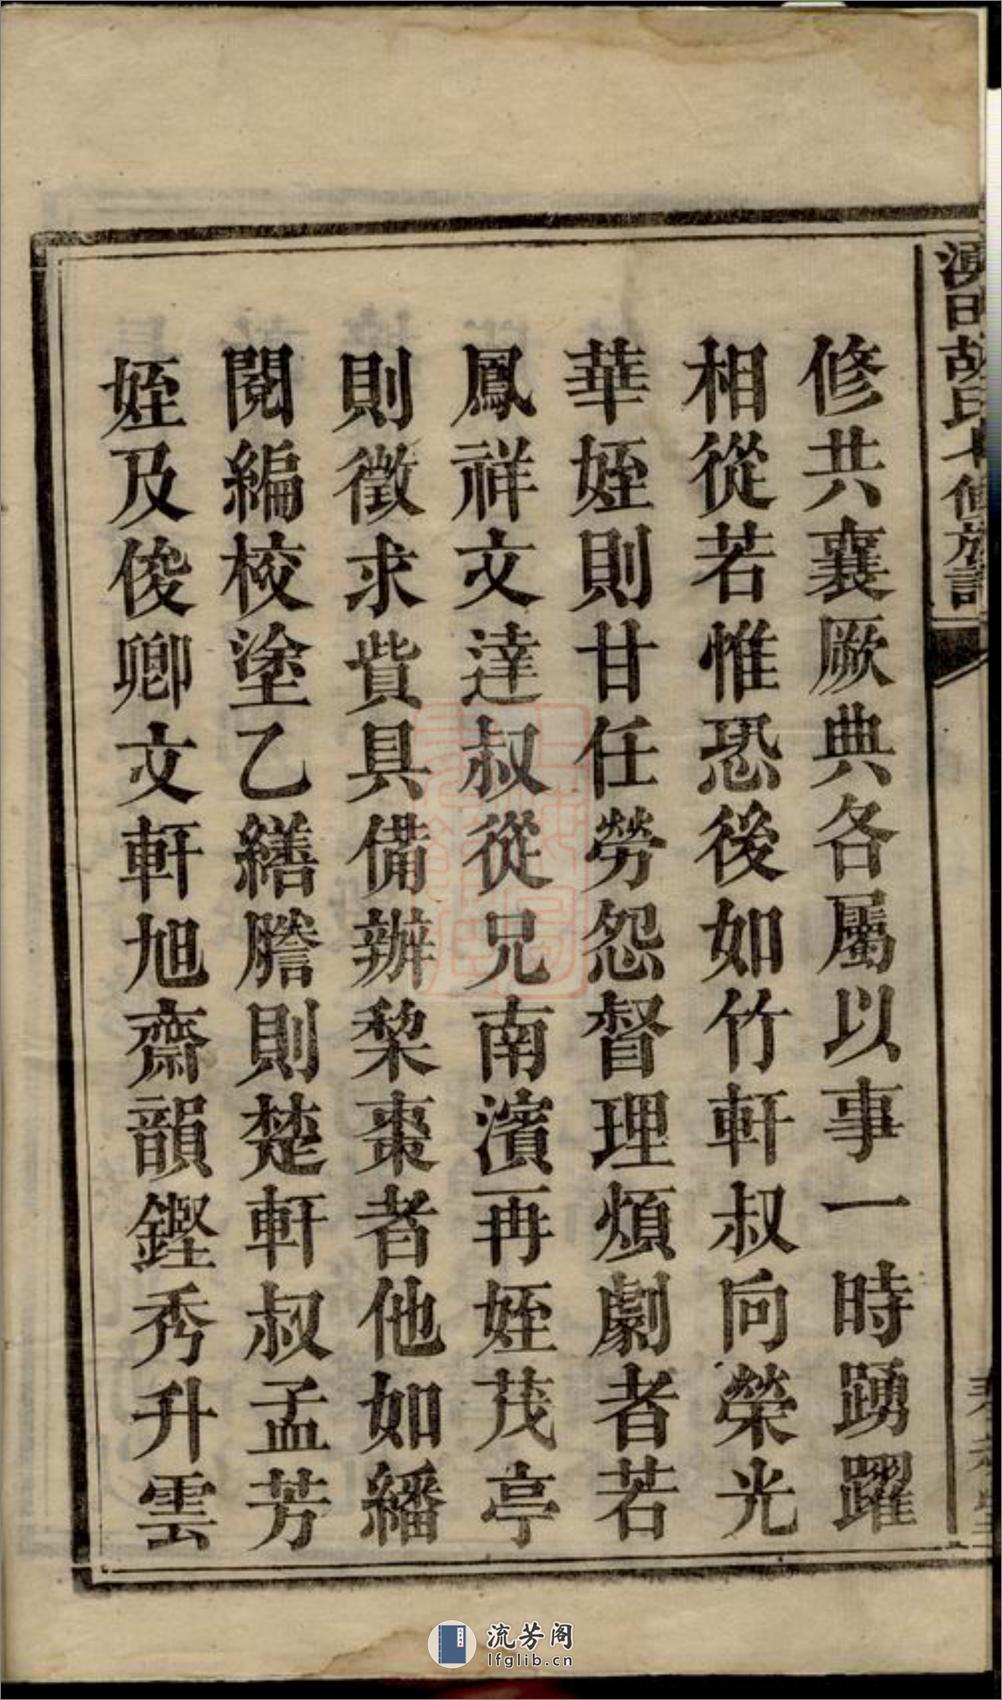 胡氏七修族譜
修共襄厥典各屬以事一時踴躍
相從若惟恐後如竹軒叔向榮光
華姪則甘任勞怨督理煩劇者若
鳳祥文達叔從兄南濱再姪茂亭
則徵求貲具備辦棃棗者他如繙
閱編校塗乙繕謄則楚軒叔孟芳
姪及俊卿文軒旭齋韻鏗秀升雲
流芳阁
lfglib.cn